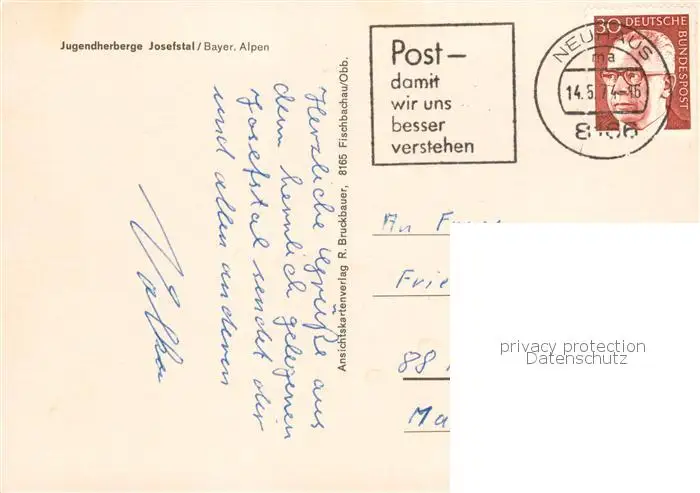 Jugendherberge Josefstal / Bayer. Alpen
Herzliche Grüße aus
dem herrlich gelegenen
Josefstal sendet dir
und allen anderen
Volker
Ansichtskartenverlag R. Bruckbauer, 8165 Fischbachau/Obb.
Post –
damit
wir uns
besser
verstehen
NEUHAUS
ma
14.5.74-16
8166
30 DEUTSCHE
BUNDESPOST
An
Frie
88
Ma
privacy protection
Datenschutz